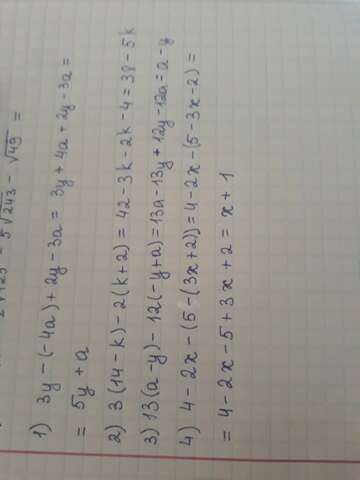 √243 - √49 =
1) 3y - (-4a) + 2y - 3a = 3y + 4a + 2y - 3a =
= 5y + a
2) 3(14 - k) - 2(k + 2) = 42 - 3k - 2k - 4 = 38 - 5k
3) 13(a - y) - 12(-y + a) = 13a - 13y + 12y - 12a = a - y
4) 4 - 2x - (5 - (3x + 2)) = 4 - 2x - (5 - 3x - 2) =
= 4 - 2x - 5 + 3x + 2 = x + 1